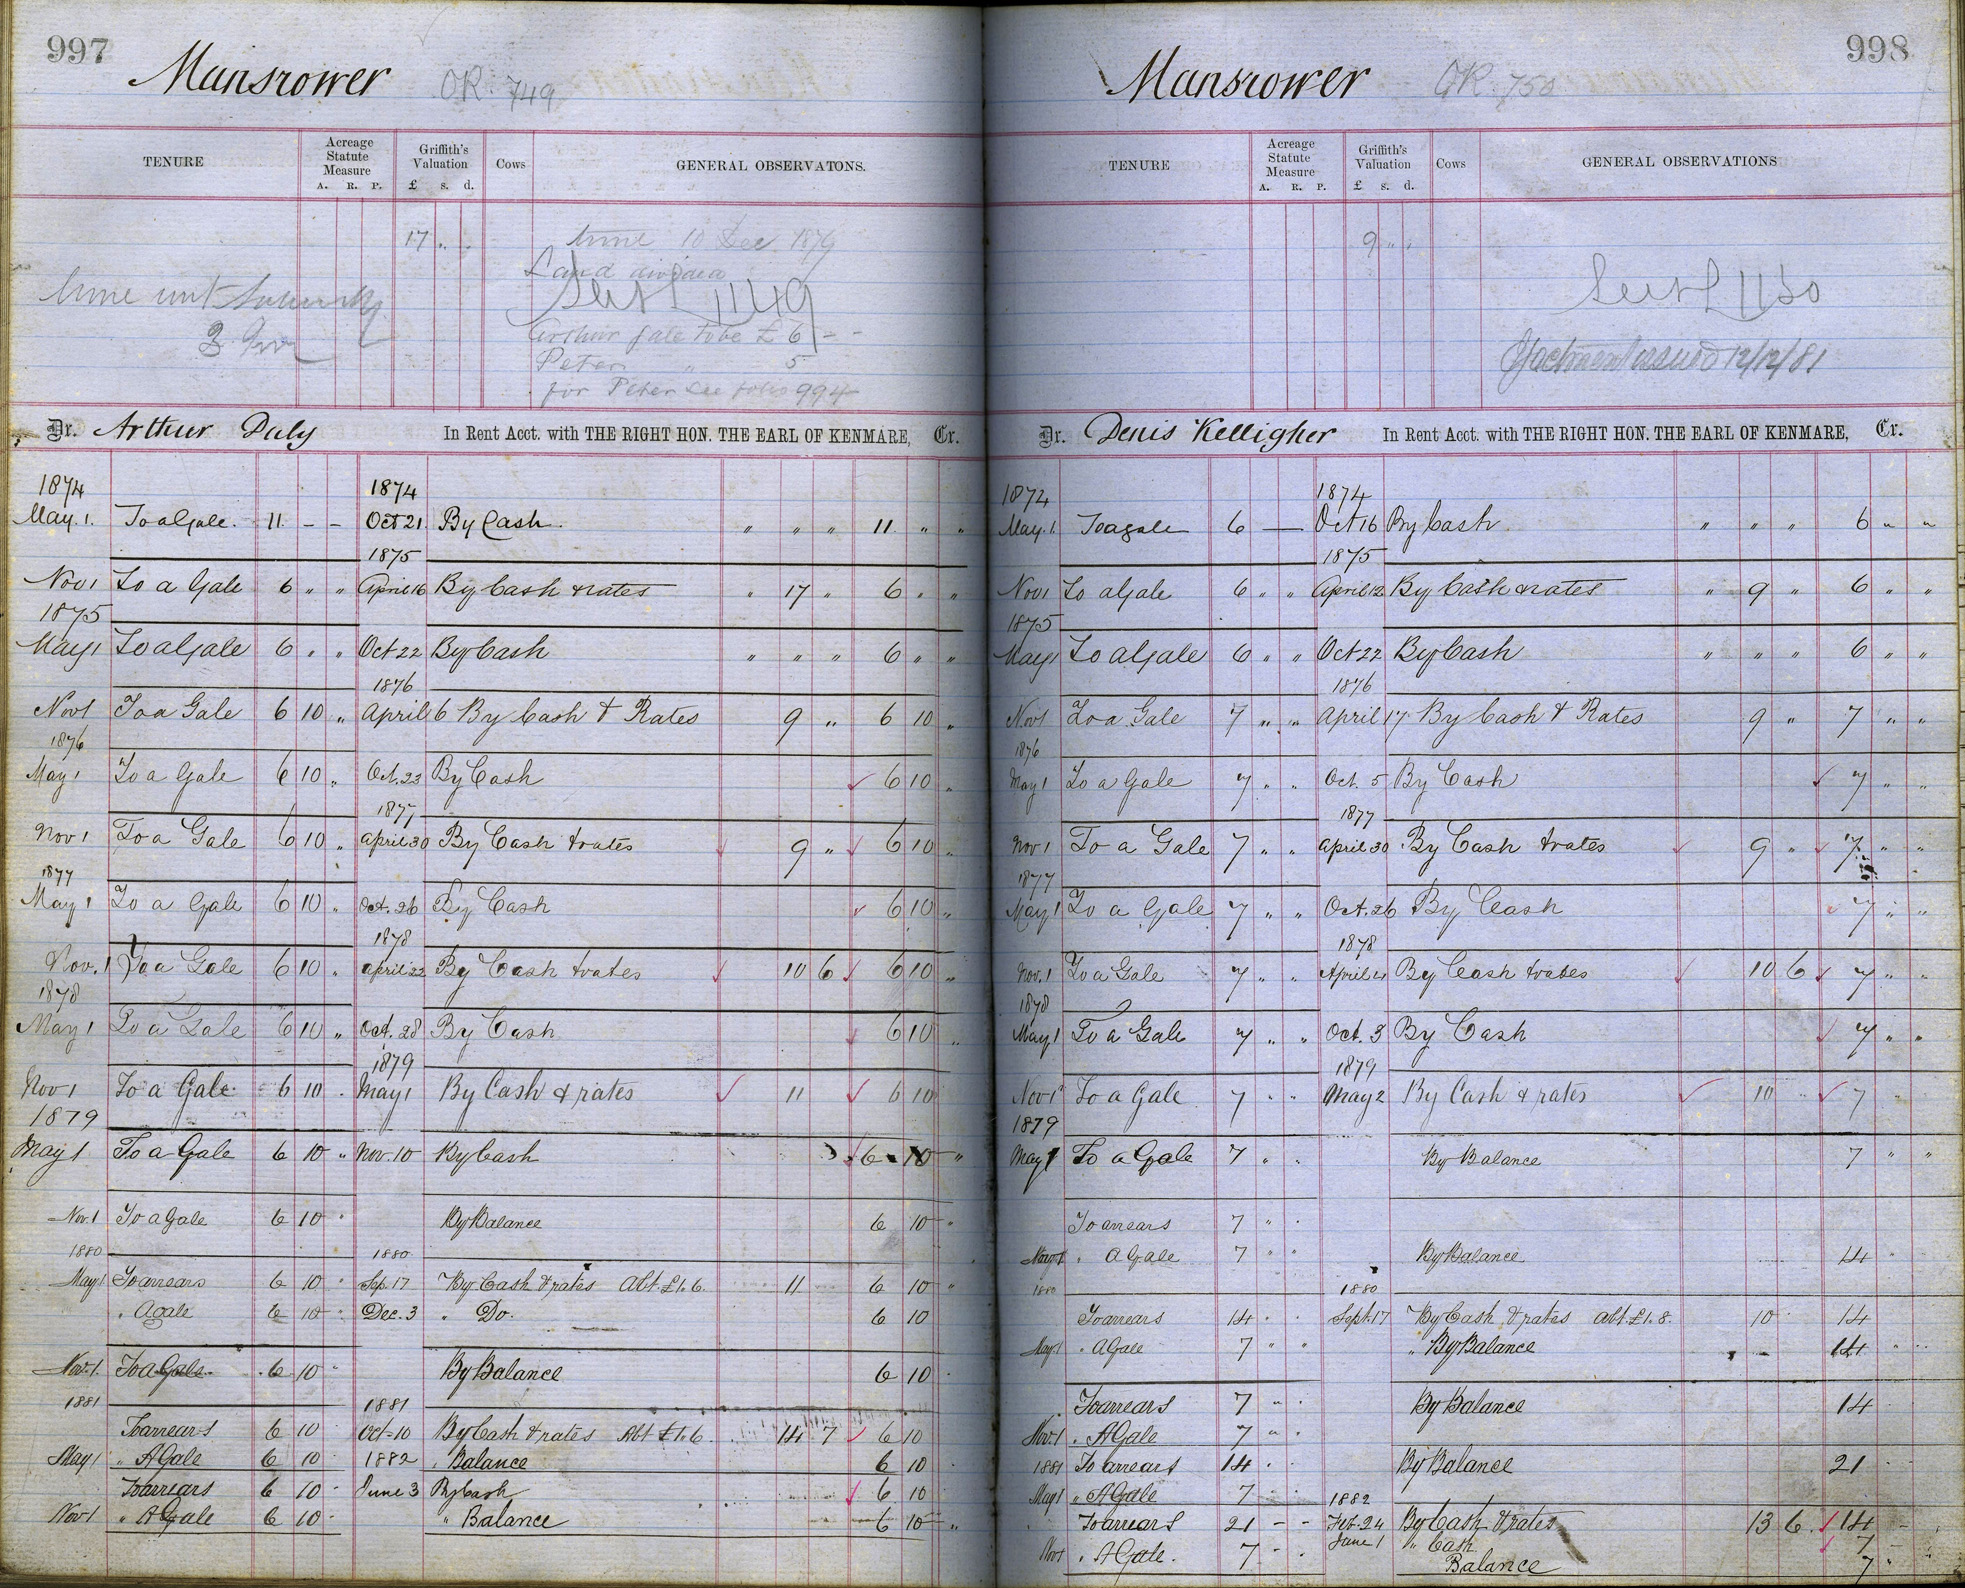 997
Mansrower OR. 749
TENURE
Acreage Statute Measure A. R. P.
Griffith's Valuation £ s. d.
Cows
GENERAL OBSERVATONS.
17 " "
10 Dec 1879
Land divided
1149
Arthur gale to be £6 - -
Peter " 5
for Peter see folio 994
Dr. Arthur Daly In Rent Acct. with THE RIGHT HON. THE EARL OF KENMARE, Cr.
1874 1874
May. 1. To a Gale. 11 - - Oct 21 By Cash. " " " 11 " "
1875
Nov 1 To a Gale 6 " " April 16 By Cash & rates " 17 " 6 " "
1875
May 1 To a Gale 6 " " Oct 22 By Cash " " " 6 " "
1876
Nov 1 To a Gale 6 10 " April 6 By Cash & Rates 9 " 6 10 "
1876
May 1 To a Gale 6 10 " Oct. 23 By Cash 6 10 "
1877
Nov 1 To a Gale 6 10 " April 30 By Cash & rates 9 " 6 10 "
1877
May 1 To a Gale 6 10 " Oct. 26 By Cash 6 10 "
1878
Nov. 1 To a Gale 6 10 " April 22 By Cash & rates 10 6 6 10 "
1878
May 1 To a Gale 6 10 " Oct. 28 By Cash 6 10 "
1879
Nov 1 To a Gale 6 10 . May 1 By Cash & rates 11 6 10
1879
May 1 To a Gale 6 10 " Nov. 10 By Cash 6 10 "
Nov. 1 To a Gale 6 10 " By Balance 6 10 "
1880 1880
May 1 To arrears 6 10 " Sep. 17 By Cash & rates Abt. £1.6. 11 6 10 "
" A Gale 6 10 " Dec. 3 " Do. 6 10
Nov. 1. To a Gale 6 10 " By Balance 6 10
1881 1881
To arrears 6 10 Oct-10 By Cash & rates Abt £1.6. 14 7 6 10
May 1 " A Gale 6 10 1882 " Balance 6 10
To arrears 6 10 June 3 By Cash 6 10
Nov 1 " A Gale 6 10 " Balance 6 10 "
998
Mansrower OR. 750
TENURE
Acreage Statute Measure A. R. P.
Griffith's Valuation £ s. d.
Cows
GENERAL OBSERVATIONS
9 " "
1150
Ejectment issued 12/12/81
Dr. Denis Kelligher In Rent Acct. with THE RIGHT HON. THE EARL OF KENMARE, Cr.
1874 1874
May. 1. To a gale 6 — Oct 16 By Cash " " " 6 " "
1875
Nov 1 To a Gale 6 " " April 12 By Cash & rates " 9 " 6 " "
1875
May 1 To a Gale 6 " " Oct 22 By Cash " " " 6 " "
1876
Nov 1 To a Gale 7 " " April 17 By Cash & Rates 9 " 7 " "
1876
May 1 To a Gale 7 " " Oct. 5 By Cash 7 " "
1877
Nov 1 To a Gale 7 " " April 30 By Cash & rates 9 " 7 " "
1877
May 1 To a Gale 7 " " Oct. 26 By Cash 7 " "
1878
Nov. 1 To a Gale 7 " " April 4 By Cash & rates 10 6 7 " "
1878
May 1 To a Gale 7 " " Oct. 3 By Cash 7 " "
1879
Nov 1 To a Gale 7 " " May 2 By Cash & rates 10 " 7
1879
May 1 To a Gale 7 " " By Balance 7 " "
To arrears 7 " "
Nov 1 " A Gale 7 " " By Balance 14 "
1880 1880
To arrears 14 " " Sept. 17 By Cash & rates Abt. £1.8. 10 14
May 1 " A Gale 7 " " " By Balance 14 " "
To arrears 7 " " By Balance 14
Nov. 1 " A Gale 7 " "
1881 To arrears 14 " " By Balance 21
May 1 " A Gale 7 " " 1882
To arrears 21 - - Feb. 24 By Cash & rates 13 6 14 -
June 1 " Cash 7 -
Nov 1 " A Gale. 7 - . Balance 7 "